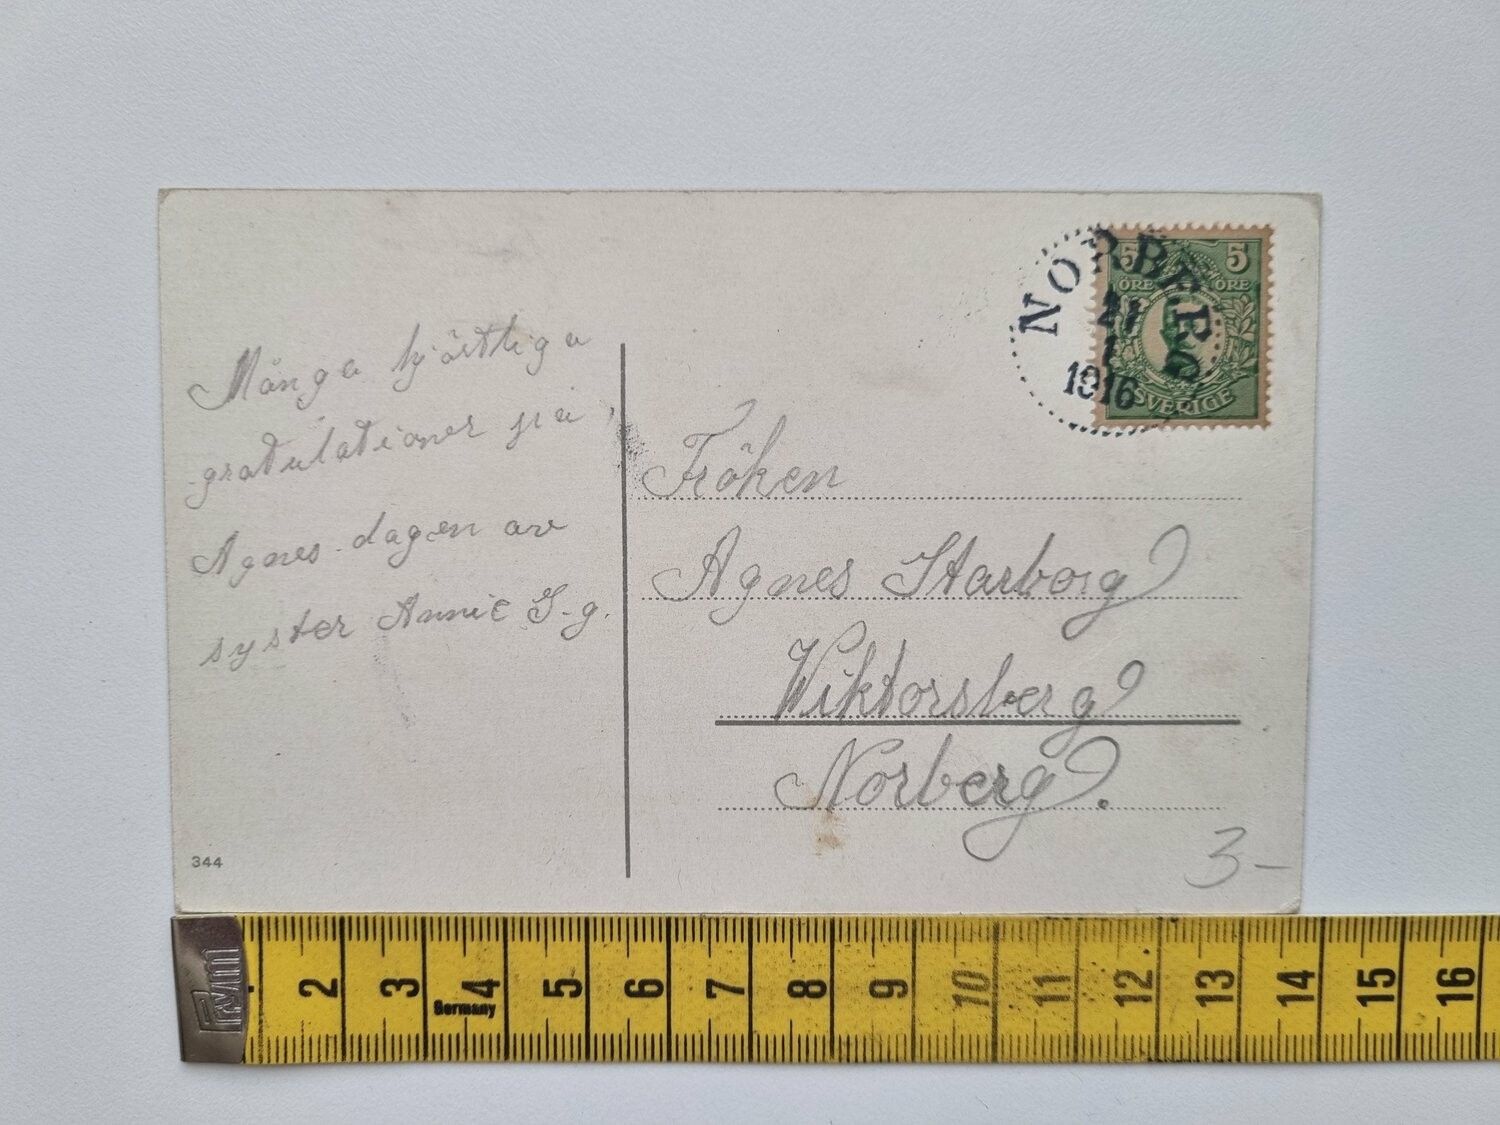 Många hjärtliga
gratulationer på
Agnes-dagen av
syster Annie S-g.
344
NORBERG
21
1
1916
5 5
ÖRE ÖRE
SVERIGE
Fröken
Agnes Starborg
Wiktorsberg
Norberg.
3-
Prym
2 3 4 5 6 7 8 9 10 11 12 13 14 15 16
Germany